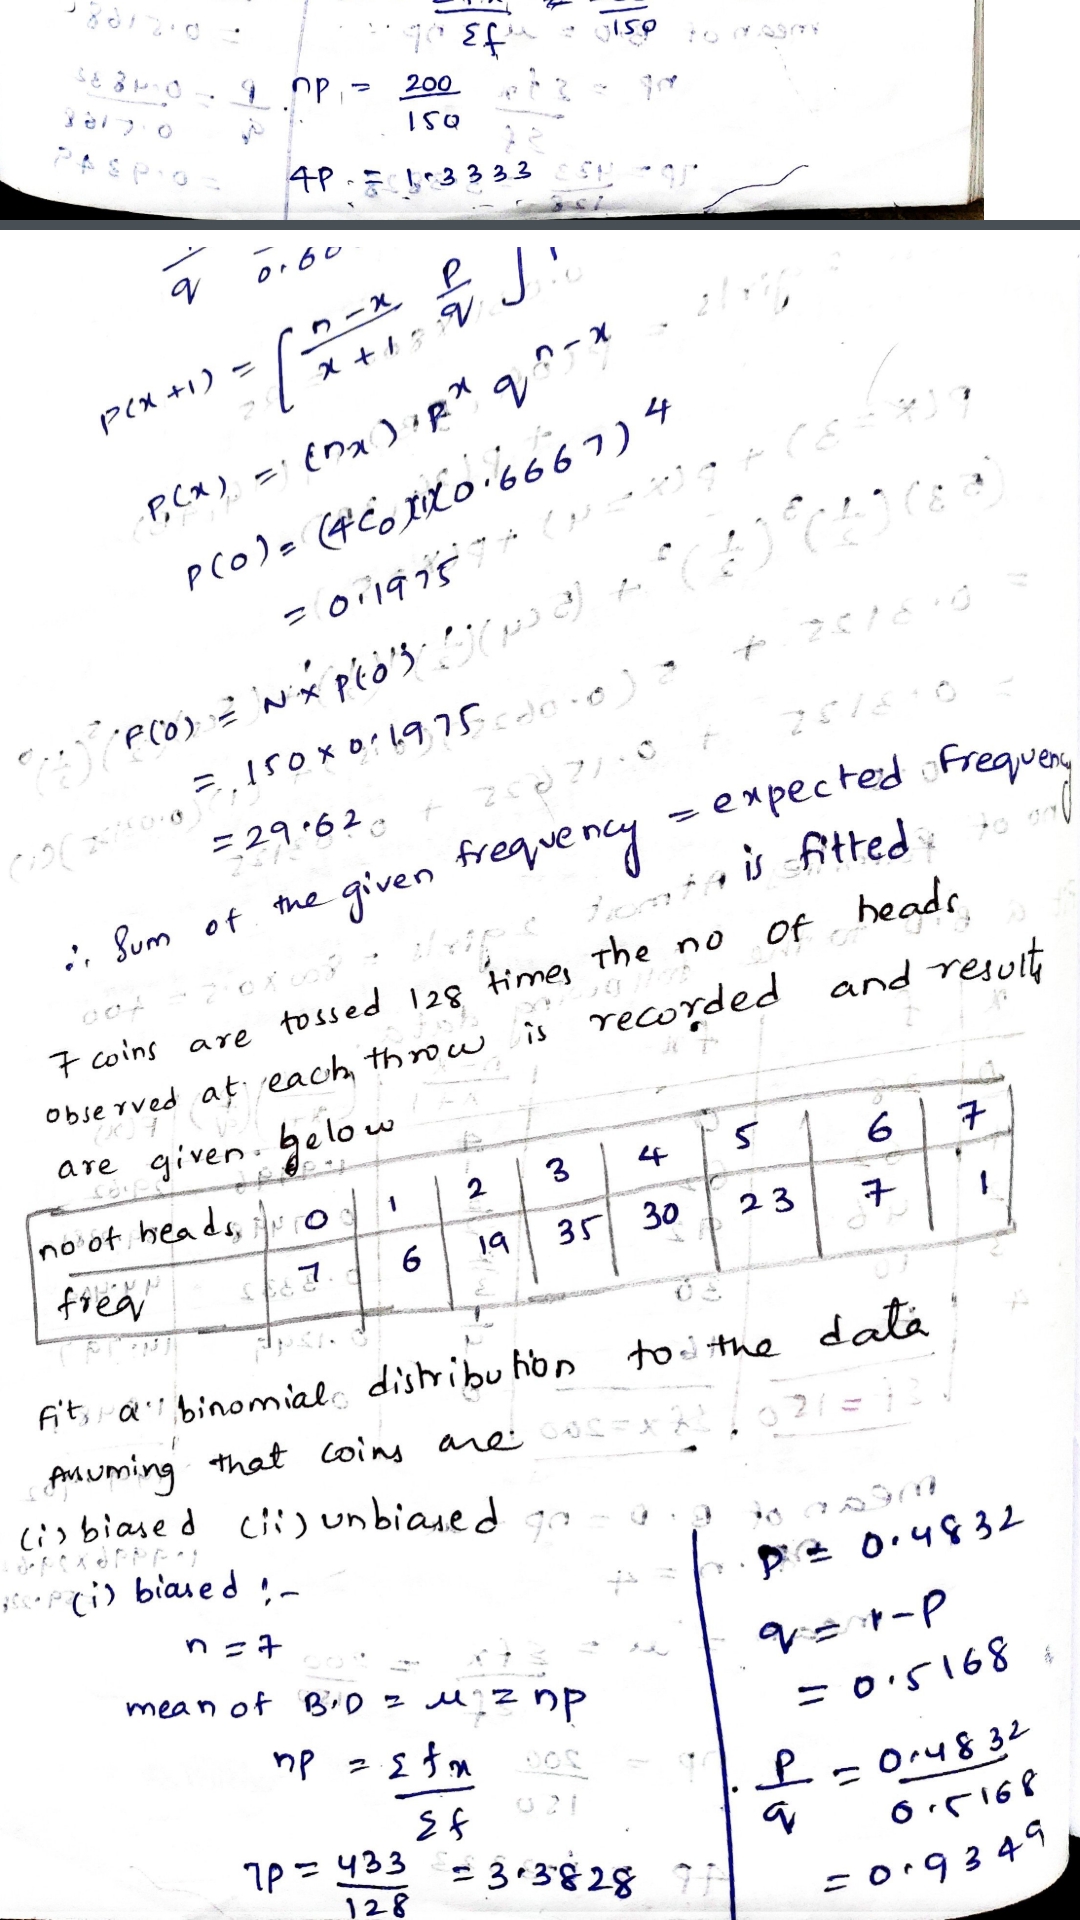 Σf 150
np = 200/150
4P = 1.3333
q 0.66
P(x+1) = [n-x/x+1 p/q]
P(x) = (nx) p^x q^n-x
P(0) = (4C0)(1)(0.6667)^4
= 0.1975
F(0) = N x P(0)
= 150 x 0.1975
= 29.62
∴ Sum of the given frequency = expected frequency
is fitted
7 coins are tossed 128 times the no of heads
observed at each throw is recorded and results
are given below
no of heads 0 1 2 3 4 5 6 7
freq 7 6 19 35 30 23 7 1
Fit a binomial distribution to the data
Assuming that coins are
(i) biased (ii) unbiased
(i) biased :-
n = 7
mean of B.D = μ = np
np = Σfx/Σf
7p = 433/128 = 3.3828
P = 0.4832
q = 1-P
= 0.5168
P/q = 0.4832/0.5168
= 0.9349